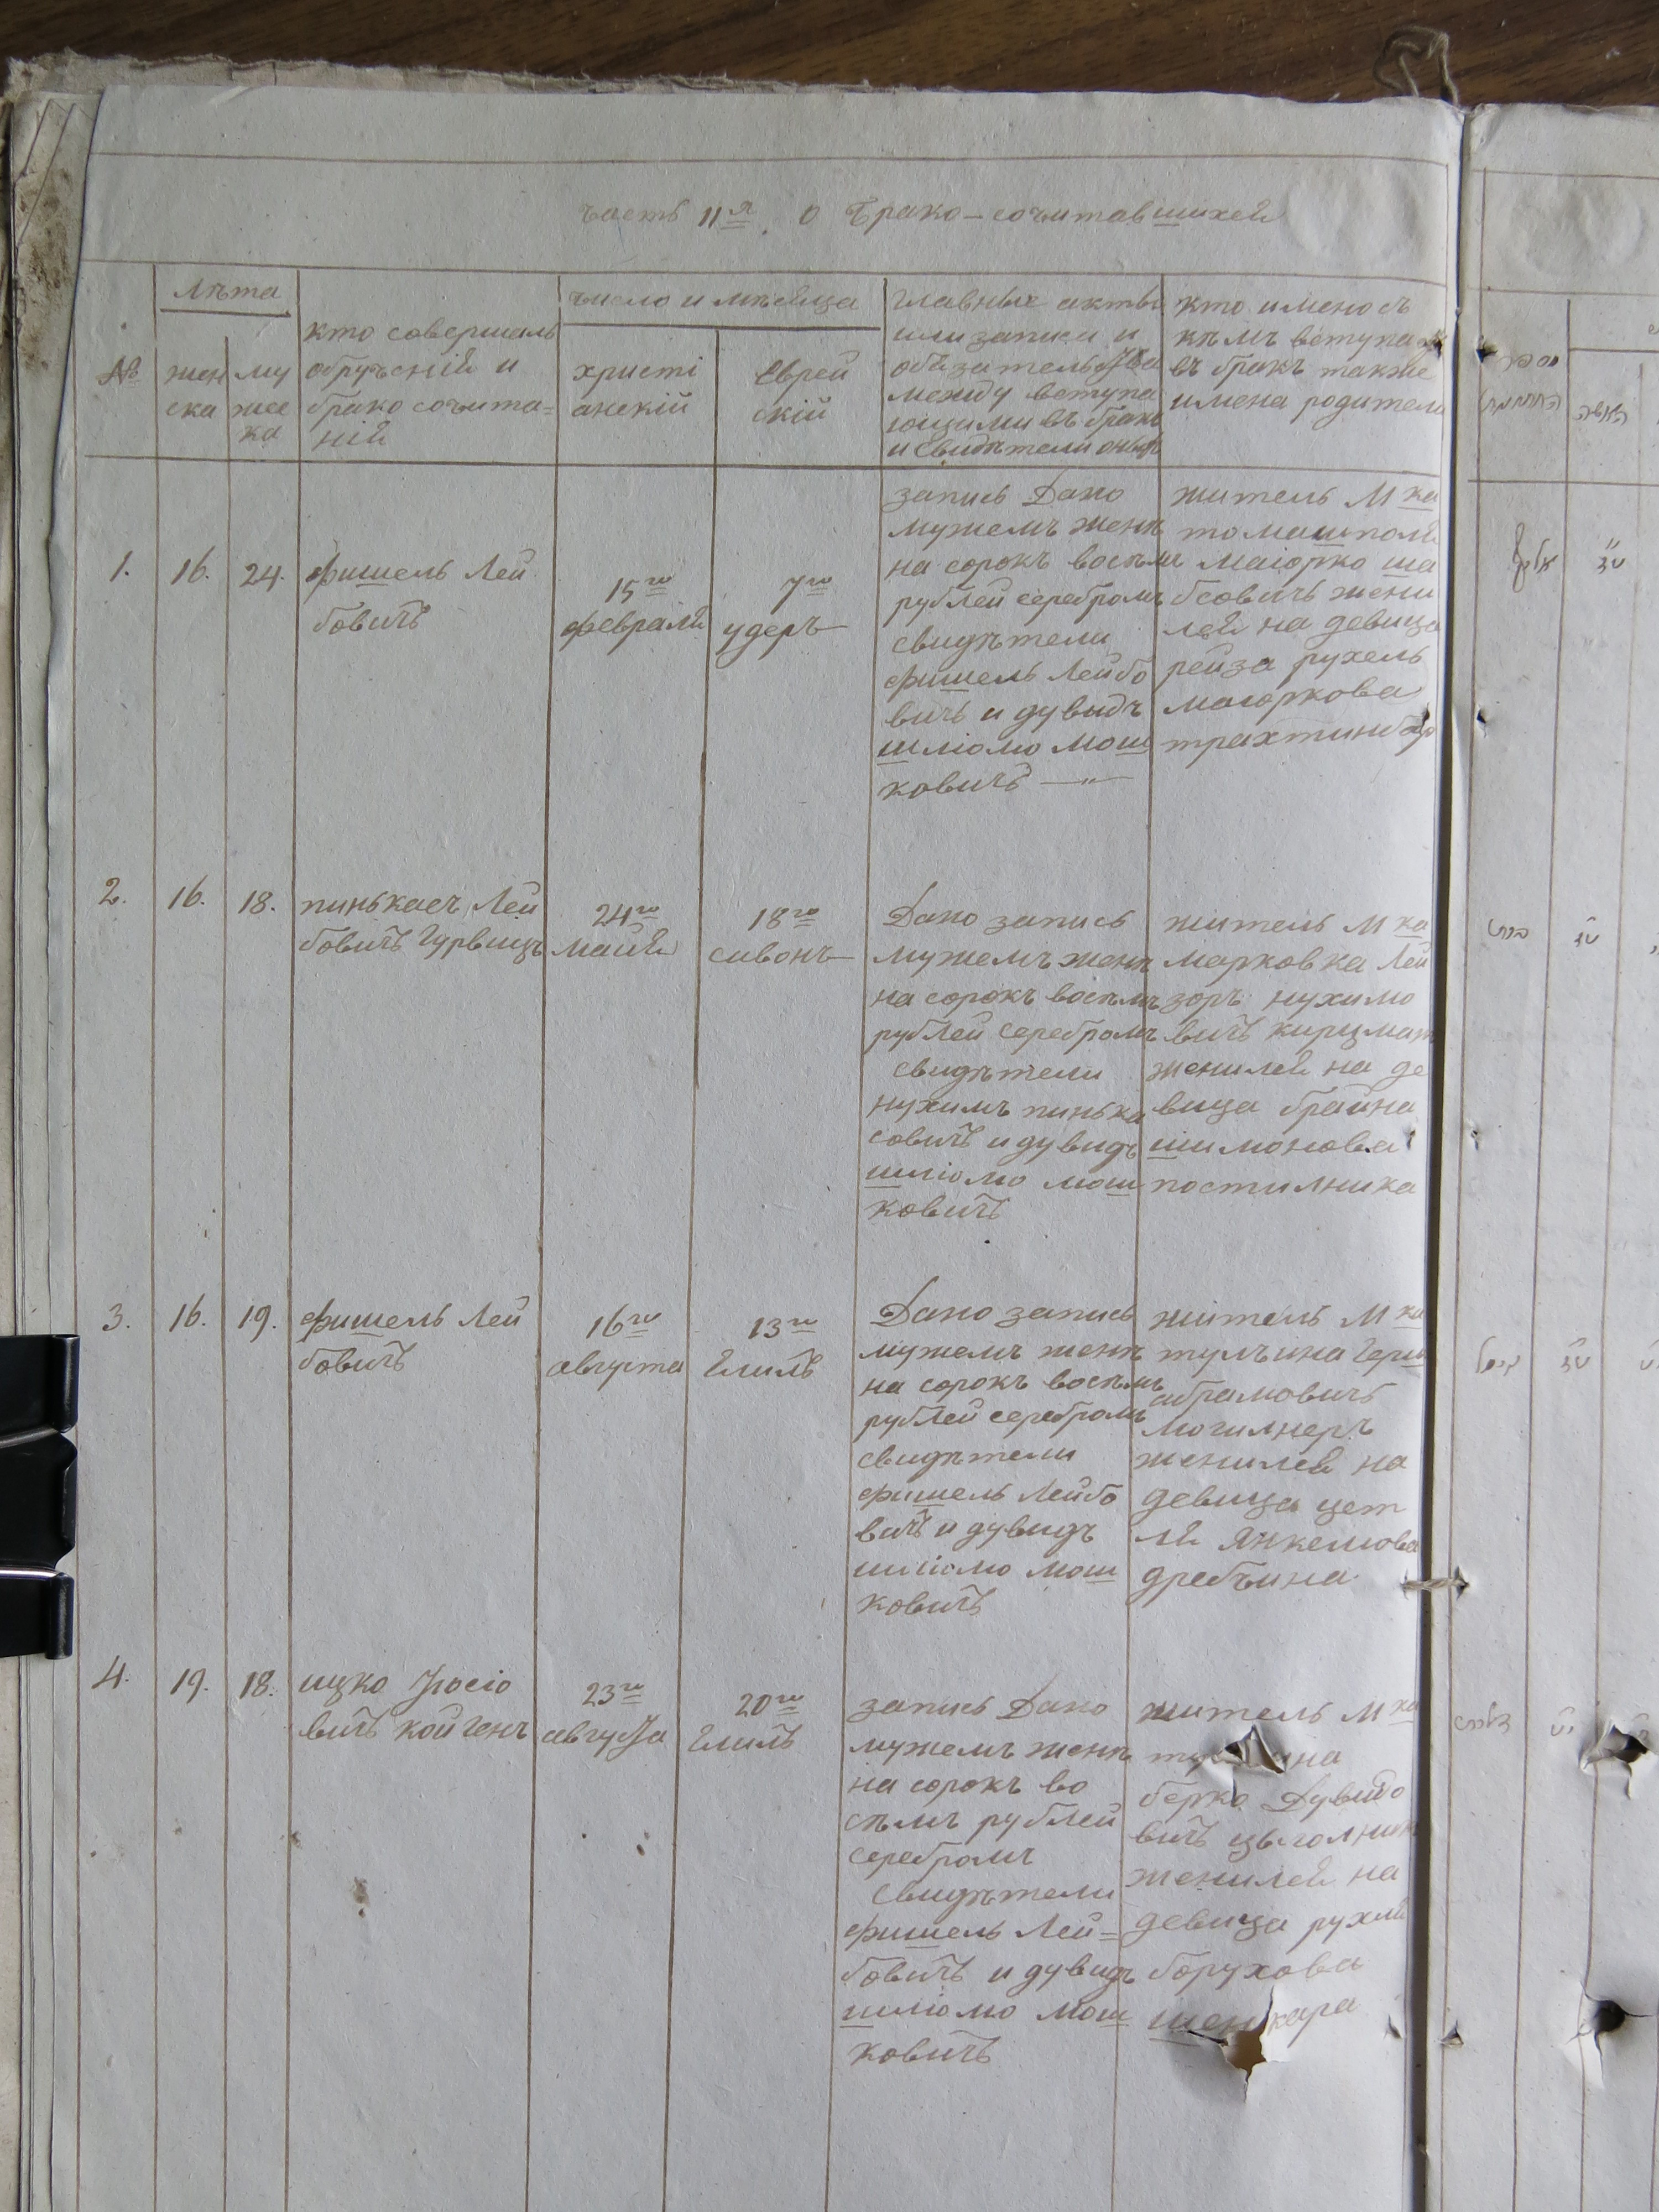 Часть II я. о Брако-сочитавшихся
№
Лѣта
жен
ска
му
жес
ка
кто совершалъ
обрученій и
брако сочита=
ній
число и мѣсяца
христі
анскій
Еврей
скій
главные акты
или записи и
обязательства
между вступа
ющими въ бракъ
и свидѣтели оныхъ
кто имено съ
кѣмъ вступа
въ бракъ также
имена родители
1.
16.
24.
фишель Лей
бовичъ
15го
февраля
7го
удеръ
запись Дано
мужемъ женѣ
на сорокъ восѣмъ
рублей серебромъ
свидѣтели
фишель Лейбо
вичъ и дувидъ
шліомо мош
ковичъ
житель М ка
томашполя
маіорко ша
бсовичъ жени
лся на девица
рейза рухель
маюркова
2.
16.
18.
пинькасъ Лей
бовичъ Гурвицъ
24го
майя
18го
сивонъ
Дано запись
мужемъ женѣ
на сорокъ восѣмъ
рублей серебромъ
свидѣтели
нухимъ пинька
совичъ и дувидъ
шліомо мош
ковичъ
житель М ка
марковка Лей
зоръ нухимо
вичъ кирцман
женился на де
вица брайна
шимонова
постилника
3.
16.
19.
фишель Лей
бовичъ
16го
августа
13го
Елиль
Дано запись
мужемъ женѣ
на сорокъ восѣмъ
рублей серебромъ
свидѣтели
фишель Лейбо
вичъ и дувидъ
шліомо мош
ковичъ
житель М ка
тульчина Герш
абрамовичъ
могилнеръ
женился на
девица цет
ля Янкелюва
дребчина
4.
19.
18.
ицко Іосіо
вичъ койгенъ
23го
августа
20го
Елиль
запись Дано
мужемъ женѣ
на сорокъ во
сѣмъ рублей
серебромъ
свидѣтели
фишель Лей=
бовичъ и дувидъ
шліомо мош
ковичъ
житель М ка
берко Дувидо
вичъ
женился на
девица рухля
борухова